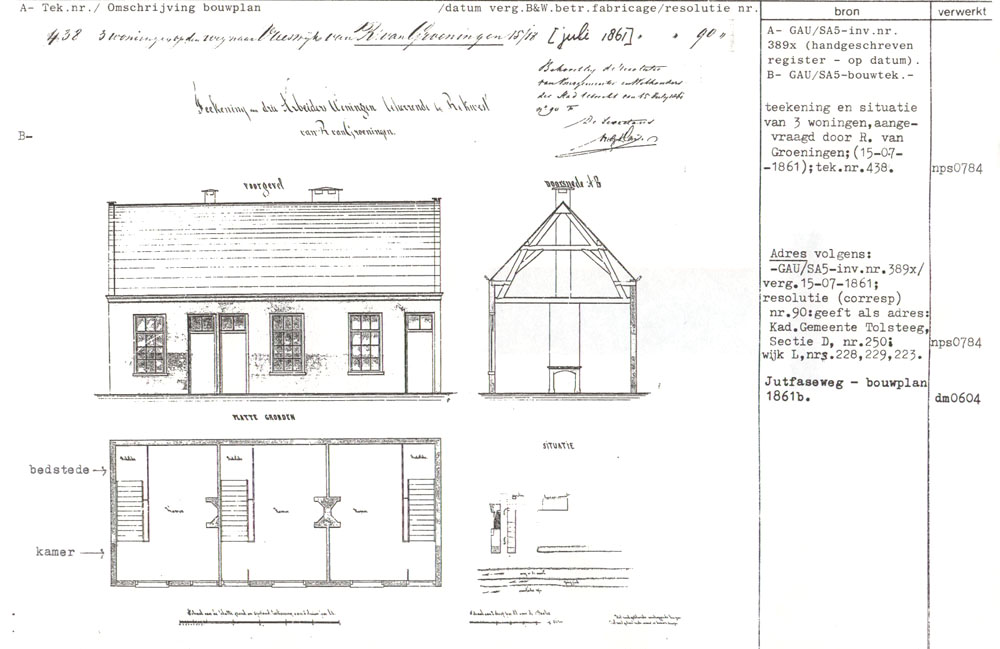 A- Tek.nr./ Omschrijving bouwplan /datum verg.B&W.betr.fabricage/resolutie nr.
438 3 woningen op den weg naar Vreeswijk van R. van Groeningen 15/18 [juli 1861] „ „ 90 „
Teekening van drie Arbeiders Woningen behoorende bij Rekwest
van R van Groeningen.
Behoort bij de resolutie
van Burgemeester en Wethouders
der Stad Utrecht van 15 July 1861
nº 90 F
De Secretaris
B-
voorgevel
doorsnede AB
PLATTE GRONDEN
SITUATIE
bedstede
kamer
Kamer
Kamer
Kamer
bron
verwerkt
A- GAU/SA5-inv.nr.
389x (handgeschreven
register - op datum).
B- GAU/SA5-bouwtek.-
teekening en situatie
van 3 woningen,aange-
vraagd door R. van
Groeningen;(15-07-
-1861);tek.nr.438.
nps0784
Adres volgens:
-GAU/SA5-inv.nr.389x/
verg.15-07-1861;
resolutie (corresp)
nr.90:geeft als adres:
Kad.Gemeente Tolsteeg,
Sectie D, nr.250;
wijk L,nrs.228,229,223.
nps0784
Jutfaseweg - bouwplan
1861b.
dm0604